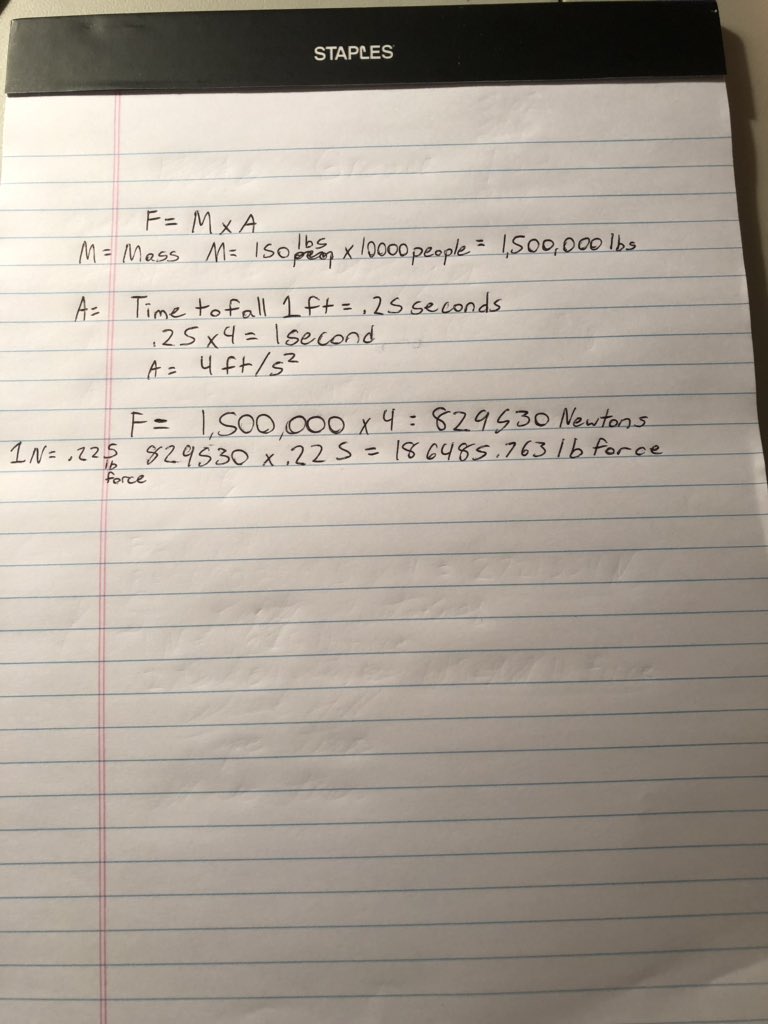 STAPLES
F = M x A
M = Mass M = 150 lbs x 10000 people = 1,500,000 lbs
A = Time to fall 1 ft = .25 seconds
.25 x 4 = 1 second
A = 4 ft/s²
F = 1,500,000 x 4 = 829530 Newtons
1 N = .225 lb force 829530 x .225 = 186485.763 lb force